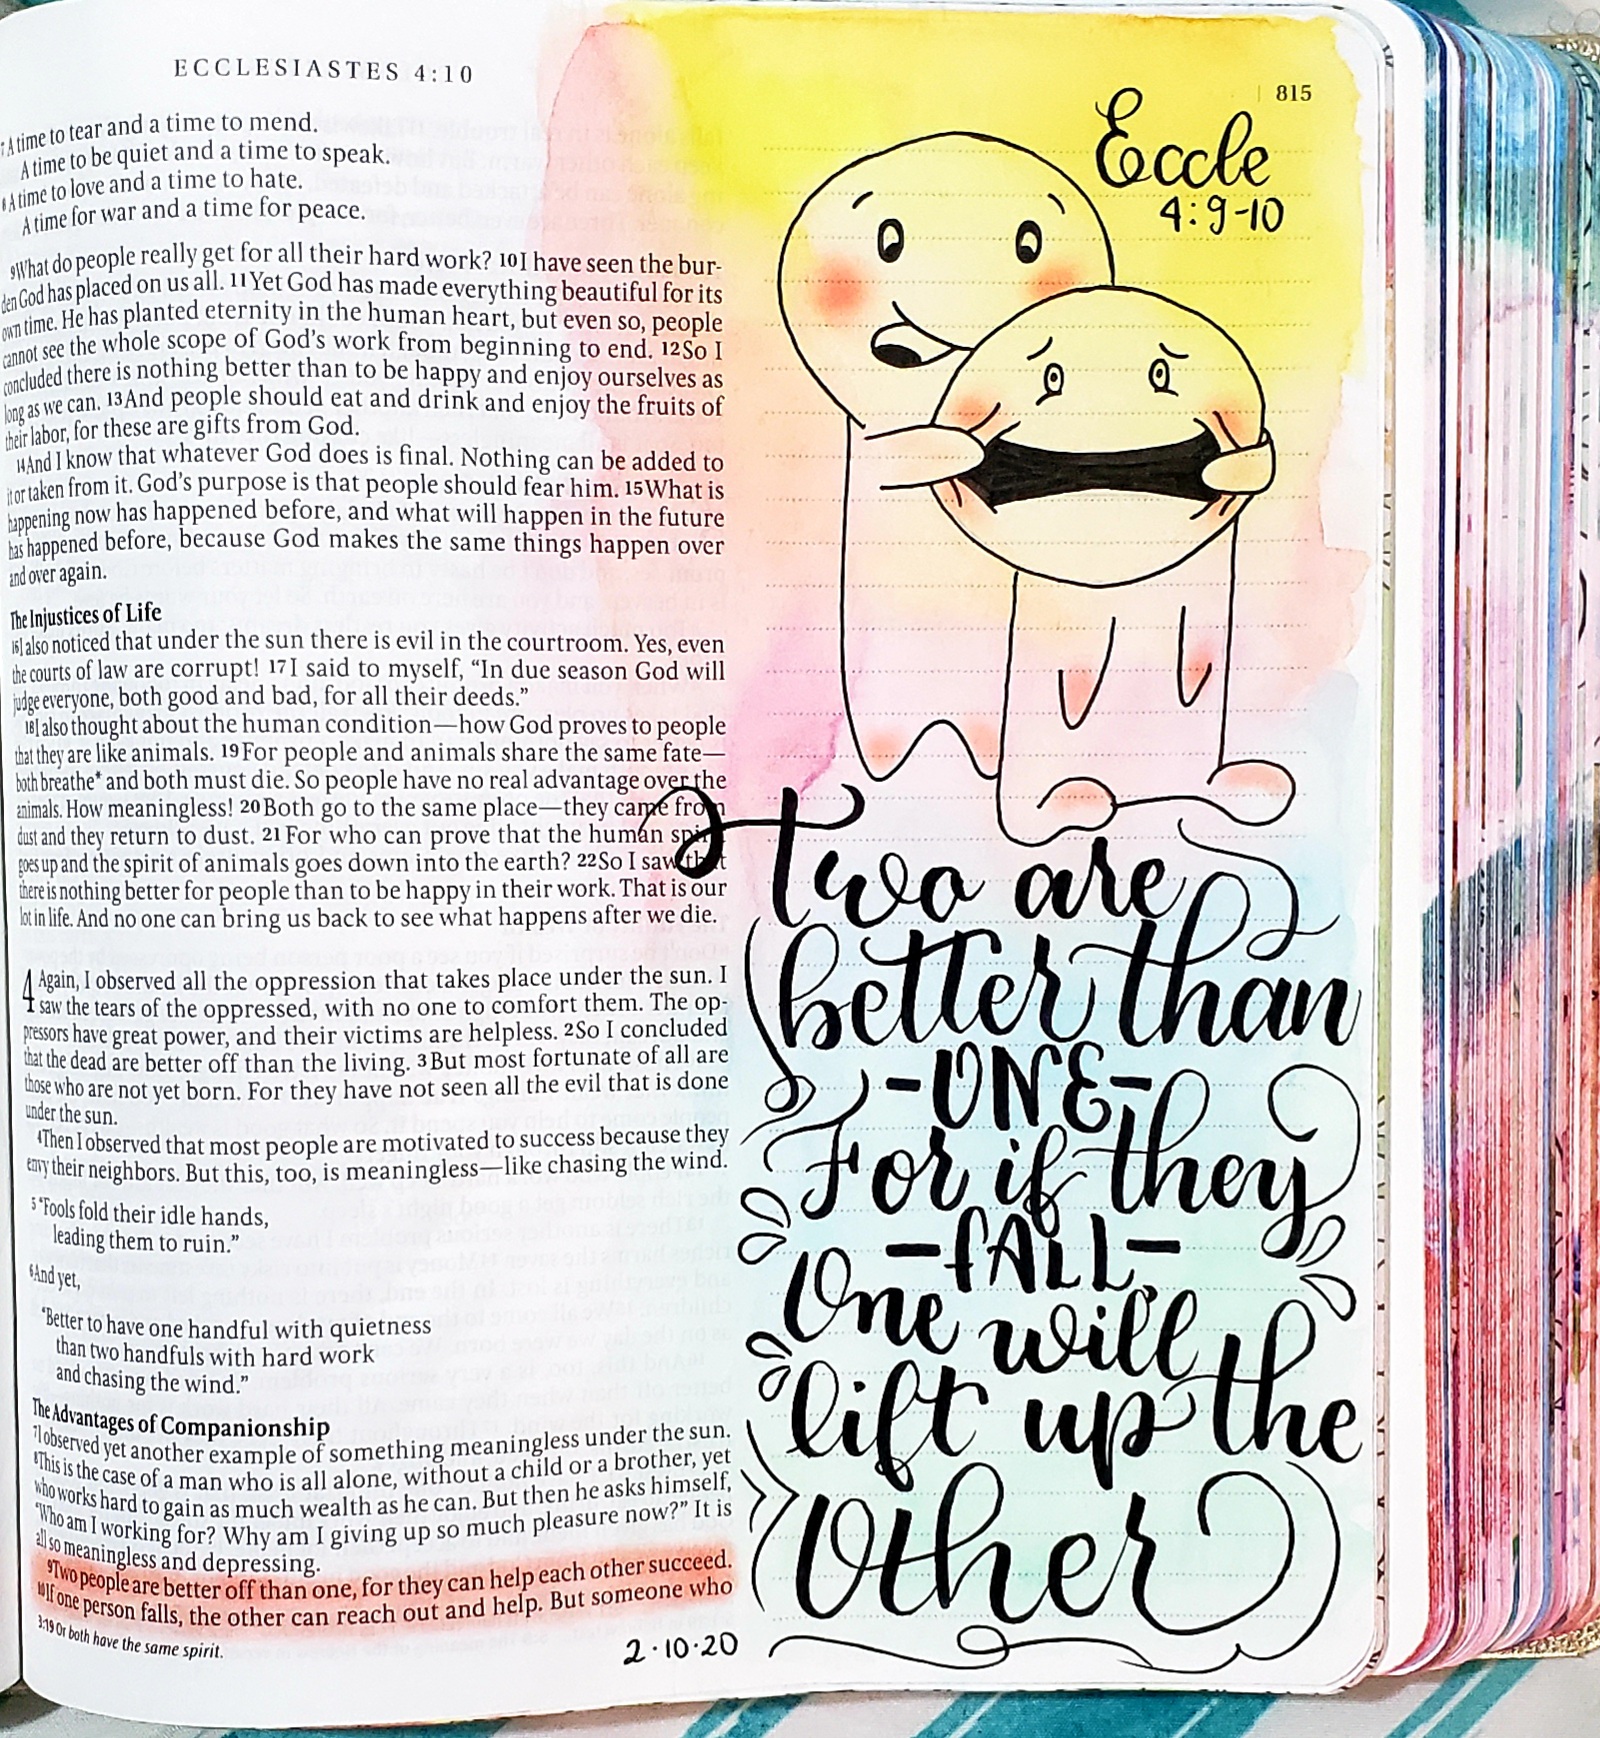 ECCLESIASTES 4:10
815
7 A time to tear and a time to mend.
A time to be quiet and a time to speak.
8 A time to love and a time to hate.
A time for war and a time for peace.
9 What do people really get for all their hard work? 10 I have seen the bur-
den God has placed on us all. 11 Yet God has made everything beautiful for its
own time. He has planted eternity in the human heart, but even so, people
cannot see the whole scope of God's work from beginning to end. 12 So I
concluded there is nothing better than to be happy and enjoy ourselves as
long as we can. 13 And people should eat and drink and enjoy the fruits of
their labor, for these are gifts from God.
14 And I know that whatever God does is final. Nothing can be added to
it or taken from it. God's purpose is that people should fear him. 15 What is
happening now has happened before, and what will happen in the future
has happened before, because God makes the same things happen over
and over again.
The Injustices of Life
16 I also noticed that under the sun there is evil in the courtroom. Yes, even
the courts of law are corrupt! 17 I said to myself, "In due season God will
judge everyone, both good and bad, for all their deeds."
18 I also thought about the human condition—how God proves to people
that they are like animals. 19 For people and animals share the same fate—
both breathe* and both must die. So people have no real advantage over the
animals. How meaningless! 20 Both go to the same place—they came from
dust and they return to dust. 21 For who can prove that the human spirit
goes up and the spirit of animals goes down into the earth? 22 So I saw that
there is nothing better for people than to be happy in their work. That is our
lot in life. And no one can bring us back to see what happens after we die.
4 Again, I observed all the oppression that takes place under the sun. I
saw the tears of the oppressed, with no one to comfort them. The op-
pressors have great power, and their victims are helpless. 2 So I concluded
that the dead are better off than the living. 3 But most fortunate of all are
those who are not yet born. For they have not seen all the evil that is done
under the sun.
4 Then I observed that most people are motivated to success because they
envy their neighbors. But this, too, is meaningless—like chasing the wind.
5 "Fools fold their idle hands,
leading them to ruin."
6 And yet,
"Better to have one handful with quietness
than two handfuls with hard work
and chasing the wind."
The Advantages of Companionship
7 I observed yet another example of something meaningless under the sun.
8 This is the case of a man who is all alone, without a child or a brother, yet
who works hard to gain as much wealth as he can. But then he asks himself,
"Who am I working for? Why am I giving up so much pleasure now?" It is
all so meaningless and depressing.
9 Two people are better off than one, for they can help each other succeed.
10 If one person falls, the other can reach out and help. But someone who
3:19 Or both have the same spirit.
2·10·20
Eccle
4:9-10
Two are
better than
-ONE-
For if they
-fALL,-
One will
lift up the
Other